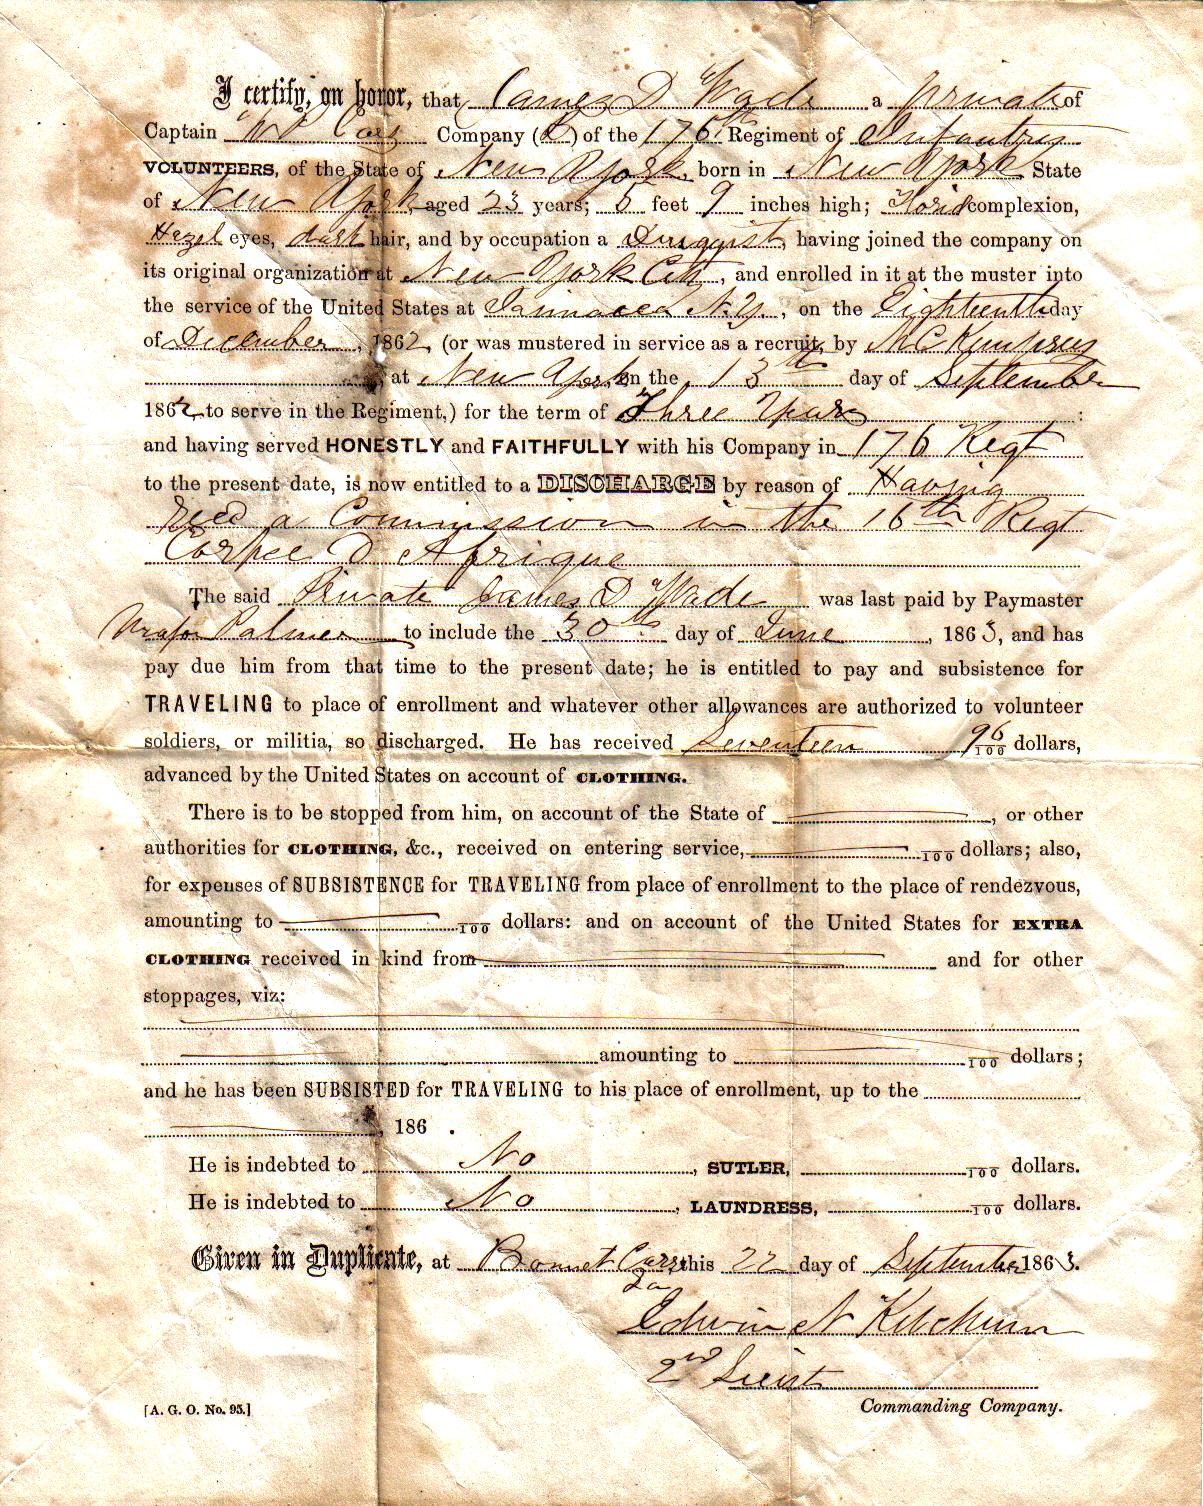 I certify, on honor, that James D Wade a Private of
Captain Company ( ) of the 176th Regiment of Infantry
VOLUNTEERS, of the State of New York, born in New York State
of New York, aged 23 years; 5 feet 9 inches high; Florid complexion,
Hezel eyes, dark hair, and by occupation a Drugist, having joined the company on
its original organization at New York City, and enrolled in it at the muster into
the service of the United States at N.Y., on the Eighteenth day
of December, 1862, (or was mustered in service as a recruit, by
, at New York, on the 13th day of September
1862, to serve in the Regiment,) for the term of Three Years :
and having served HONESTLY and FAITHFULLY with his Company in 176 Regt
to the present date, is now entitled to a DISCHARGE by reason of Having
Recd a Commission in the 16th Regt
Corpse D Afrique
The said Private James D Wade was last paid by Paymaster
Major Palmer to include the 30th day of June, 1863, and has
pay due him from that time to the present date; he is entitled to pay and subsistence for
TRAVELING to place of enrollment and whatever other allowances are authorized to volunteer
soldiers, or militia, so discharged. He has received Seventeen 96/100 dollars,
advanced by the United States on account of CLOTHING.
There is to be stopped from him, on account of the State of , or other
authorities for CLOTHING, &c., received on entering service, /100 dollars; also,
for expenses of SUBSISTENCE for TRAVELING from place of enrollment to the place of rendezvous,
amounting to /100 dollars: and on account of the United States for EXTRA
CLOTHING received in kind from and for other
stoppages, viz:
amounting to /100 dollars;
and he has been SUBSISTED for TRAVELING to his place of enrollment, up to the
, 186 .
He is indebted to No , SUTLER, /100 dollars.
He is indebted to No , LAUNDRESS, /100 dollars.
Given in Duplicate, at Bonnet Carre this 22 day of September 1863.
La
Edwin N Ketchum
2nd Lieut
[A. G. O. No. 95.] Commanding Company.